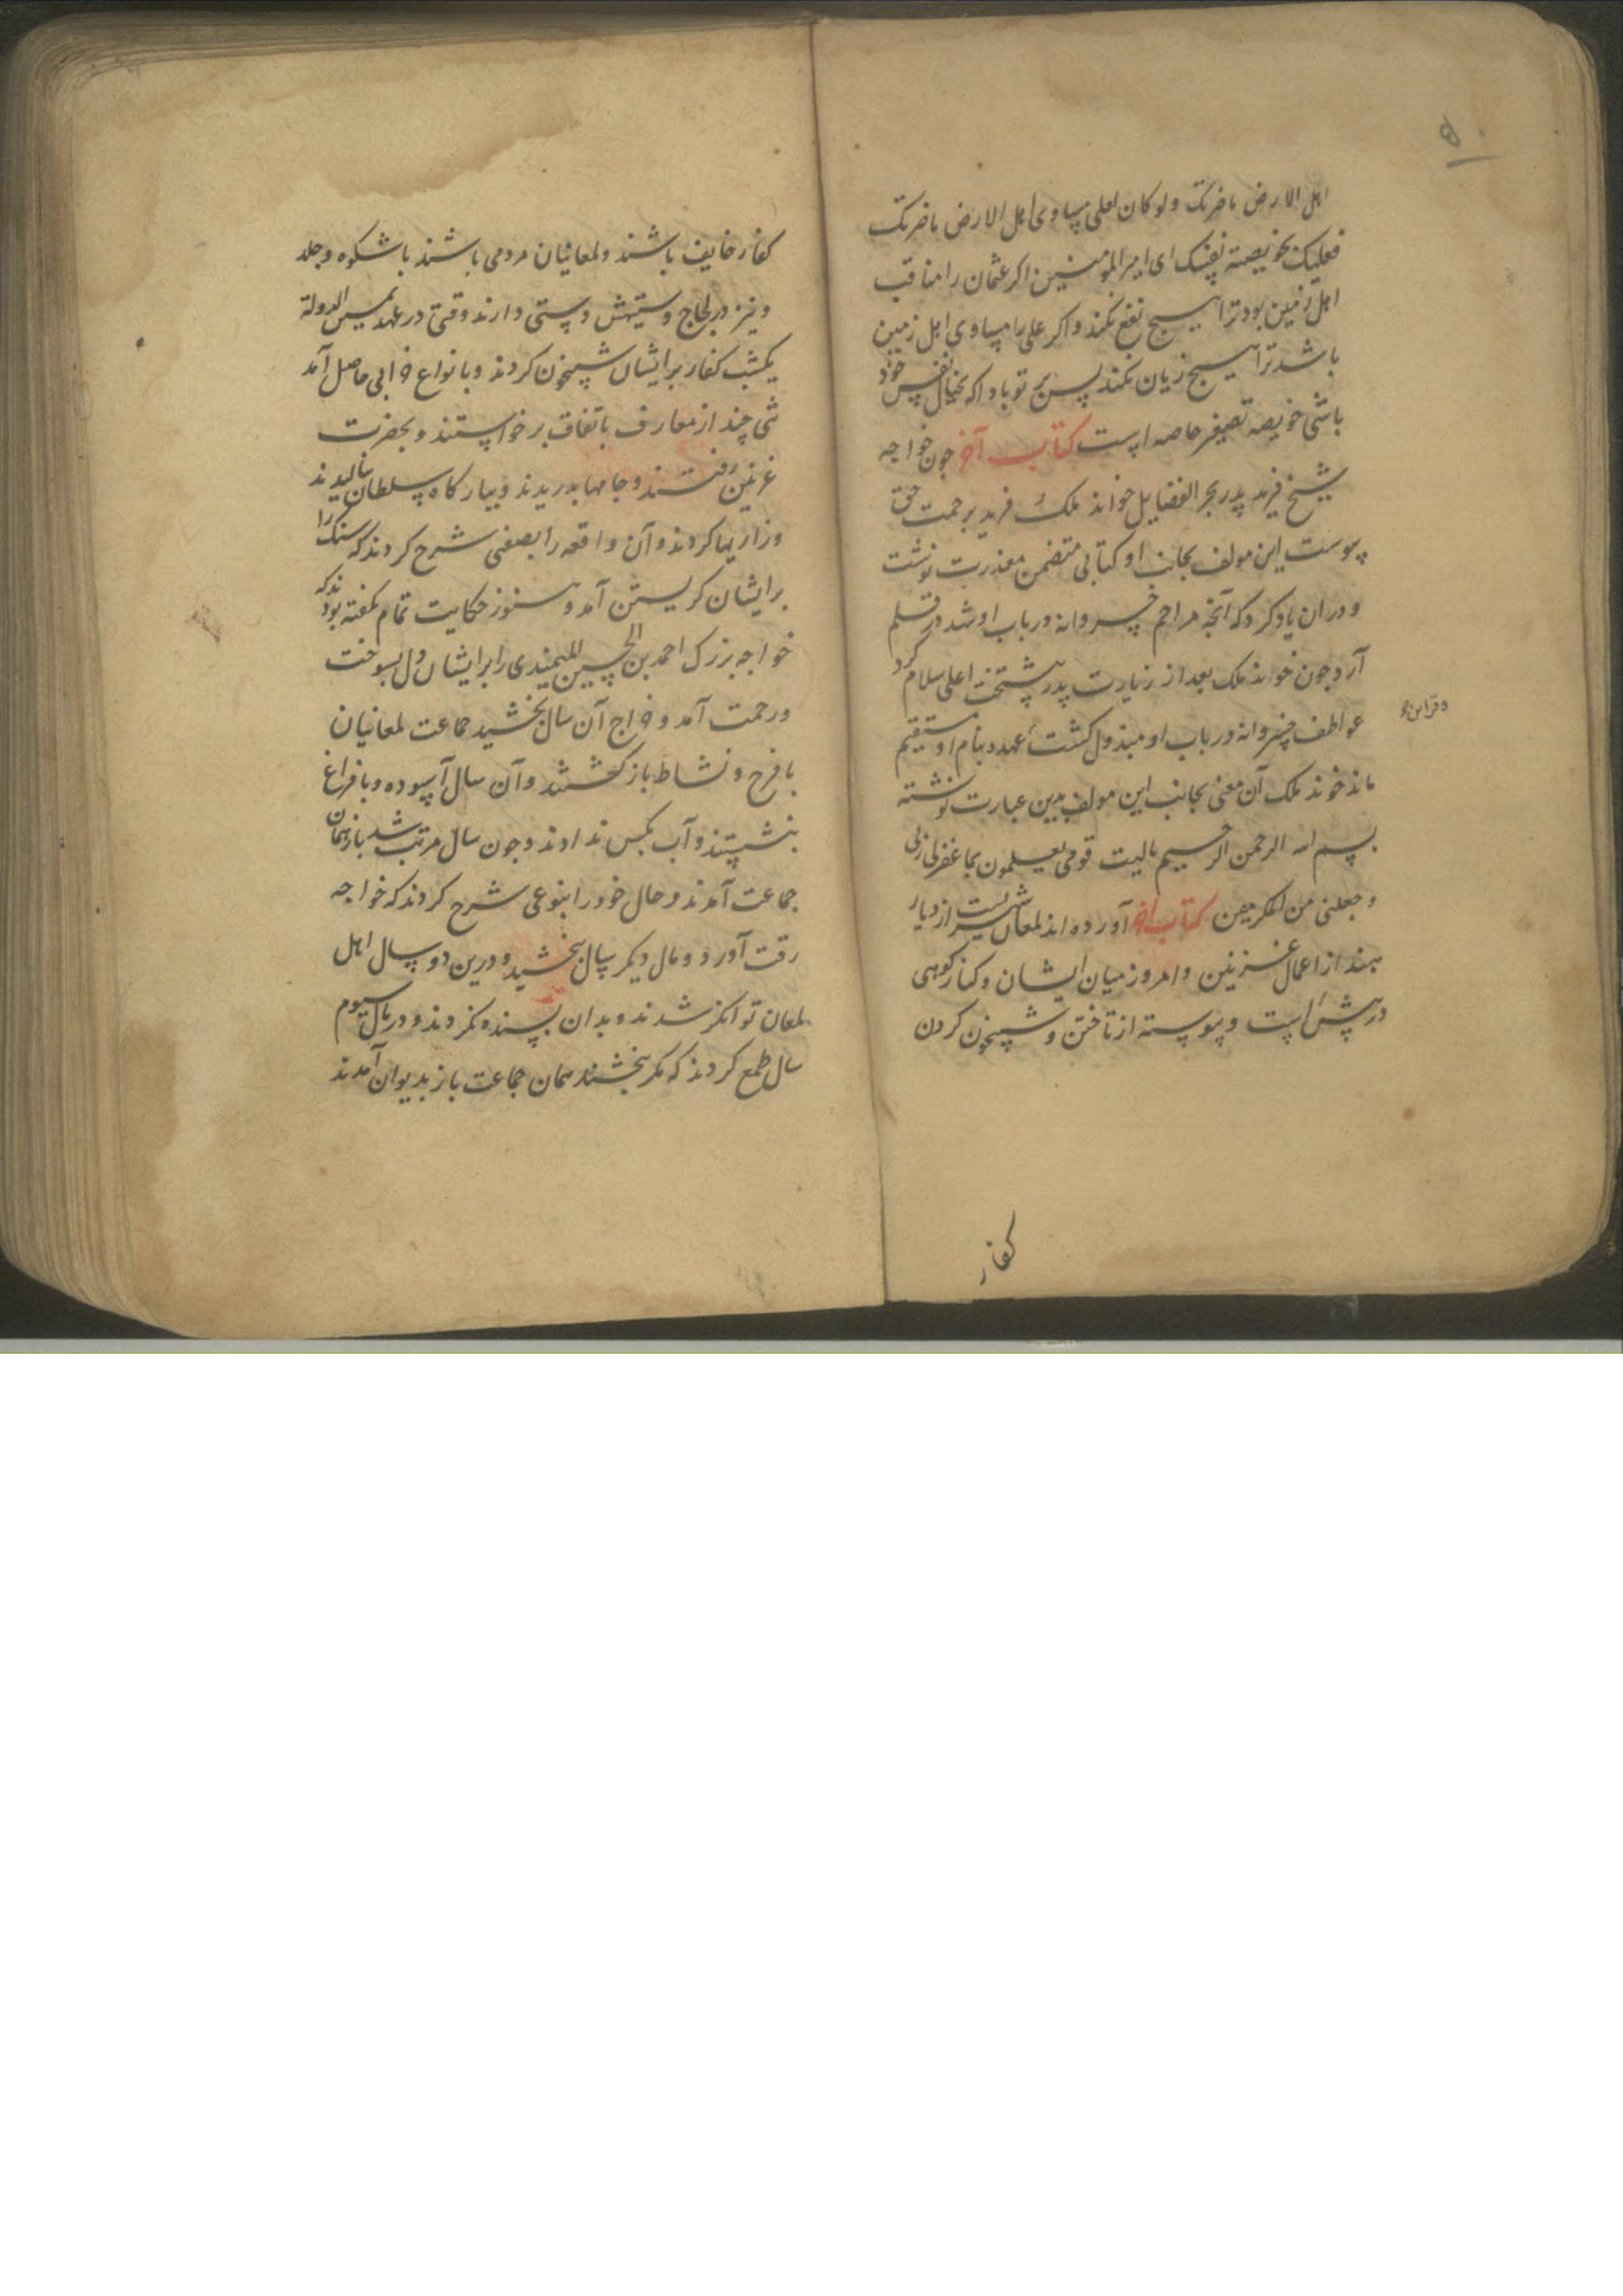 ۵
اهل الارض ماضرتک ولو کان لعلی مساوی اهل الارض ماضرتک
فعلیک بخویصة نفسک ای امیر المومنین اکر عثمان را مناقب
اهل زمین بود ترا هیچ نفع نکند و اکر علی را مساوی اهل زمین
باشد ترا هیچ زیان نکند پس بر تو باد اکه بخیال نفس خود
باشی خویصه تصغیر خاصه است کتاب آخر جون خواجه
شیخ فرید پدر بحر الفضایل خواند ملک فرید برحمت حق
پیوست این مولف بجانب او کتابی متضمن معذرت نوشت
و دران یاد کرد که آنجه مراحم خسروانه در باب او شد در قلم
آرد جون خواند ملک بعد از زیارت پدر پشتخت اعلی سلام کرد
عواطف خسروانه در باب او مبذول کشت عهده بنام او مستقیم
ماند خوند ملک آن معنی بجانب این مولف بدین عبارت نوشته
بسم الله الرحمن الرحیم یالیت قومی یعلمون بما غفرلی ربی
و جعلنی من المکرمین کتاب اخر آورده اند لمغان شهریست از دیار
هند از اعمال غزنین و امروز میان ایشان و کفار کوهی
در پیش است و پیوسته از تاختن و شبیخون کردن
کفار
کفار خایف باشند و لمغانیان مردمی باشند باشکوه و جلد
و نیز در لجاج و ستیهش دستی دارند وقتی در عهد یمین الدولة
یکشب کفار برایشان شبیخون کردند و بانواع خرابی حاصل آمد
تنی چند از معارف باتفاق برخواستند و بحضرت
غزنین رفتند و جامها بدریدند و ببارکاه سلطان نالیدند
و زاریها کردند و آن واقعه را بصفتی شرح کردند که سنک را
برایشان کریستن آمد و هنوز حکایت تمام نکفته بودند که
خواجه بزرک احمد بن الحسین المیمندی را برایشان دل بسوخت
و رحمت آمد و خراج آن سال بخشید جماعت لمغانیان
با فرح و نشاط باز کشتند و آن سال آسوده و با فراغ
بنشستند و آب بکس ندادند و جون سال مرتب شد باز همان
جماعت آمدند و حال خود را بنوعی شرح کردند که خواجه
رقت آورد و مال دیکر سال بخشید و درین دو سال اهل
لمغان توانکر شدند و بدان بسنده نکردند و در سال سیوم
سال طمع کردند که مکر بخشند همان جماعت باز بدیوان آمدند